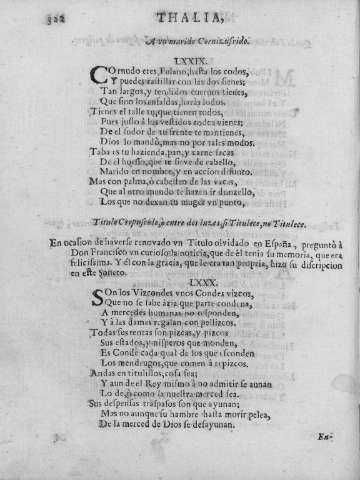 322
THALIA,
A vn marido Cornicufrido.
LXXIX.
COrnudo eres, Fulano, hasta los codos,
Y puedes rastillar con las dos sienes;
Tan largos, y tendidos cuernos tienes,
Que sino los enfaldas, harás lodos.
Tienes el talle tu, que tienen todos,
Pues justo à los vestidos todos vienes;
De el sudor de tu frente te mantienes,
Dios lo mandò, mas no por tales modos.
Taba es tu hazienda, pan, y carne sacas
De el huesso, que te sirve de cabello,
Marido en nombre, y en accion difunto.
Mas con palma, ò cabestro de las vacas,
Que al otro mundo te hazen ir donzello,
Los que no dexan tu muger vn punto,
Titulo Crepusculo, ò entre dos luzes, si Titulece, no Titulece.
En ocasion de haverse renovado vn Titulo olvidado en España, preguntò à
Don Francisco vn curioso la noticia, que de èl tenia su memoria, que era
felicissima. Y èl con la gracia, que le era tan propria, hizo su discripcion
en este Soneto.
LXXX.
SOn los Vizcondes vnos Condes vizcos,
Que no se sabe àzia que parte conduna,
A mercedes humanas no responden,
Y à las damas regalan con pellizcos.
Todas sus rentas son pizcas, y pizcos
Sus estados, y nisperos que monden,
Es Conde cada qual de los que esconden
Los mendrugos, que comen à repizcos.
Andas en titulillos, cosa sea;
Y aun de el Rey mismo à no admitir se aunan
Lo de, ò como la nuestra merced sea.
Sus despensas traspassos son que ayunan;
Mas no aunque su hambre hasta morir pelea,
De la merced de Dios se desayunan.
En-